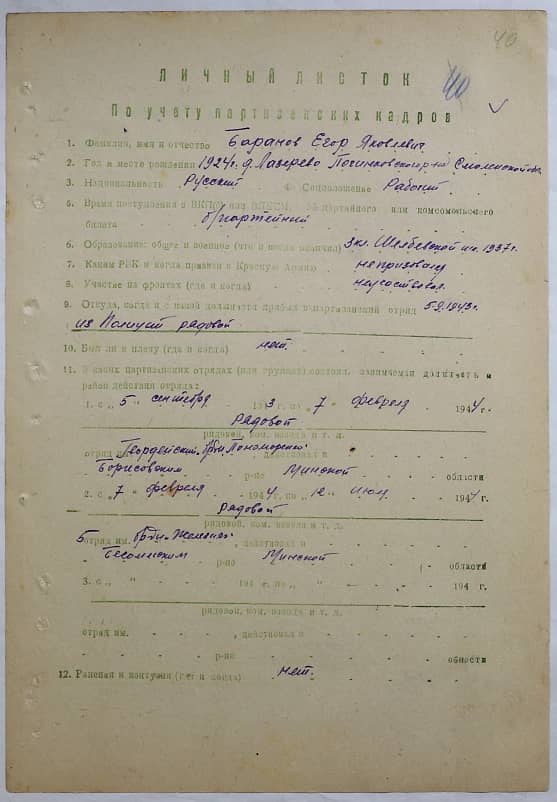 40
40
ЛИЧНЫЙ ЛИСТОК
По учету партизанских кадров
1. Фамилия, имя и отчество Баранов Егор Яковлевич
2. Год и место рождения 1924г. д. Лазарево Починковского р-на Смоленской обл.
3. Национальность Русский 4. Соцположение Рабочий
5. Время поступления в ВКП(б) или ВЛКСМ, № партийного или комсомольского
билета б/партейный
6. Образование: общее и военное (что и когда окончил) 3 кл. школы 1937г.
7. Каким РВК и когда призван в Красную Армию не призывался
8. Участие на фронтах (где и когда) не участвовал
9. Откуда, когда и с какой должности прибыл в партизанский отряд 5.9.1943г.
из Полиции рядовой
10. Был ли в плену (где и когда) нет.
11. В каких партизанских отрядах (или группах) состоял, занимаемая должность и
район действия отряда:
1. с „ 5 " сентября 1943 г. по „ 7 " февраля 1944 г.
Рядовой
рядовой, ком. взвода и т. д.
отряд им. Гвардейский бр-ды Пономарева, действовал в
Борисовском р-не Минской области
2. с „ 7 " февраля 1944 г. по „ 12 " июля 1944 г.
Рядовой
рядовой, ком. взвода и т. д.
5 отряд им. бр-ды "Железняк", действовал в
Бегомльском р-не Минской области
3. с „ " 194 г. по „ " 194 г.
рядовой, ком. взвода и т. д.
отряд им. , действовал в
р-не области
12. Ранения и контузия (где и когда) нет.